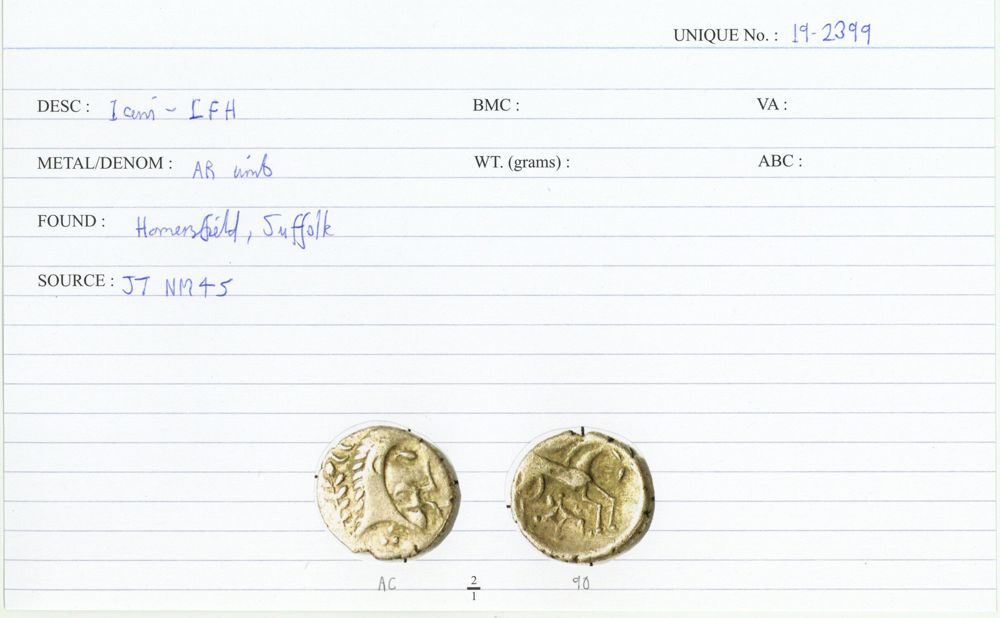 UNIQUE No. : 19-2399
DESC : Iceni - LFH BMC : VA :
METAL/DENOM : AR unit WT. (grams) : ABC :
FOUND : Homersfield, Suffolk
SOURCE : JT NM45
AC 2/1 90